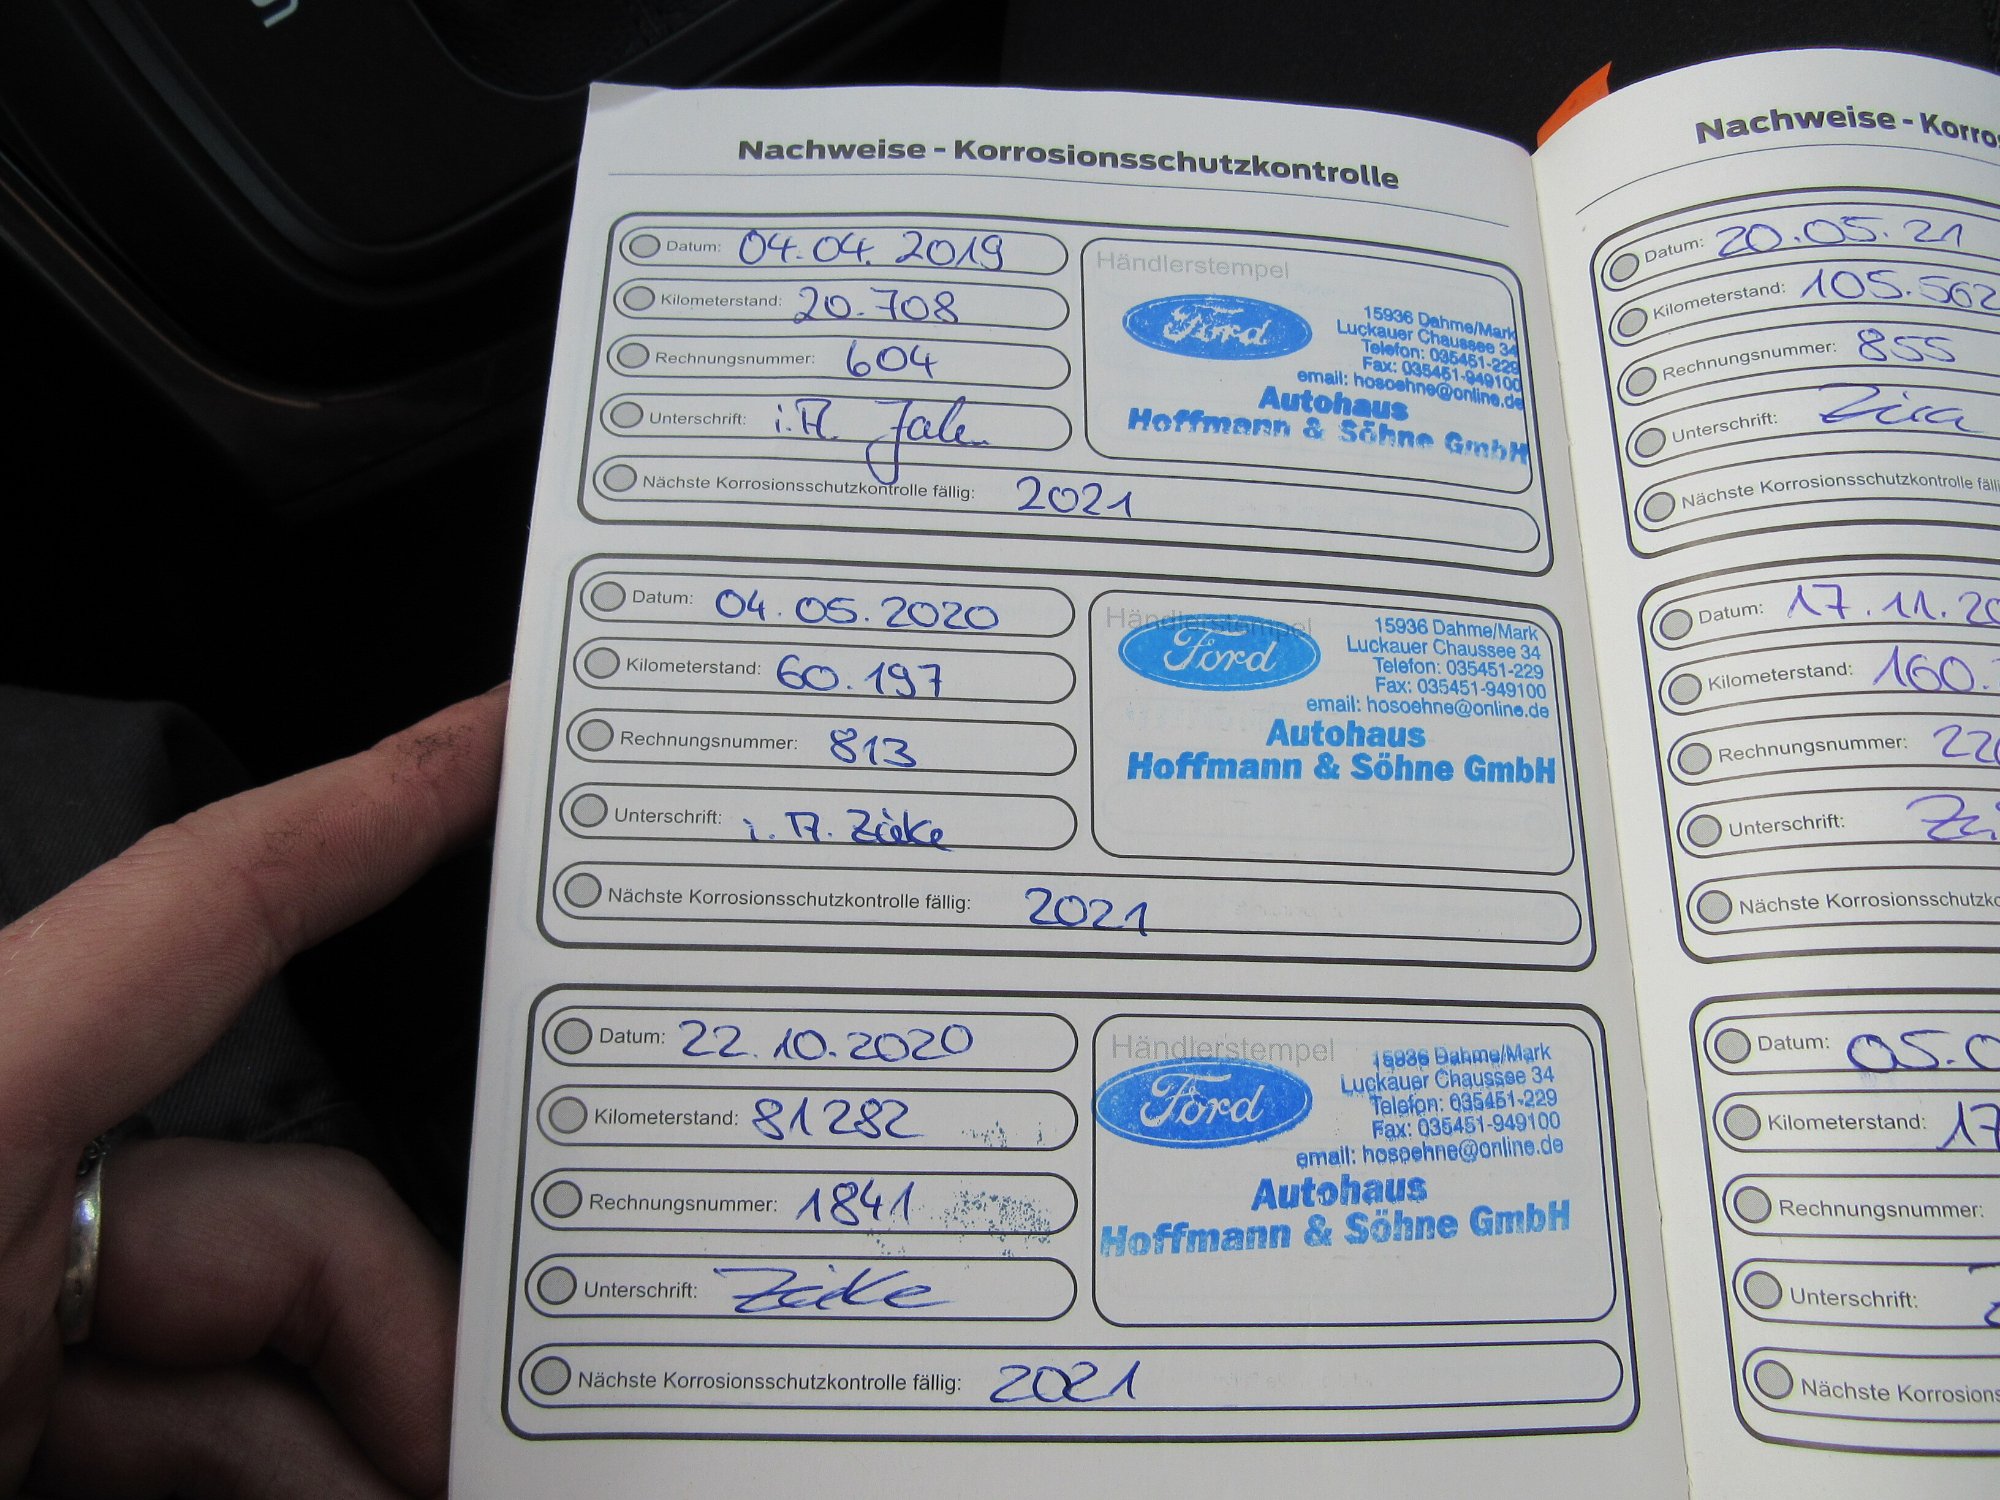 Nachweise - Korrosionsschutzkontrolle
Datum: 04.04.2019
Kilometerstand: 20.708
Rechnungsnummer: 604
Unterschrift: i.A.
Nächste Korrosionsschutzkontrolle fällig: 2021
Händlerstempel
Ford
15936 Dahme/Mark
Luckauer Chaussee 34
Telefon: 035451-229
Fax: 035451-949100
email: hosoehne@online.de
Autohaus
Hoffmann & Söhne GmbH
Datum: 04.05.2020
Kilometerstand: 60.197
Rechnungsnummer: 813
Unterschrift: i.A. Zieke
Nächste Korrosionsschutzkontrolle fällig: 2021
Händlerstempel
Ford
15936 Dahme/Mark
Luckauer Chaussee 34
Telefon: 035451-229
Fax: 035451-949100
email: hosoehne@online.de
Autohaus
Hoffmann & Söhne GmbH
Datum: 22.10.2020
Kilometerstand: 81282
Rechnungsnummer: 1841
Unterschrift: Zieke
Nächste Korrosionsschutzkontrolle fällig: 2021
Händlerstempel
Ford
15936 Dahme/Mark
Luckauer Chaussee 34
Telefon: 035451-229
Fax: 035451-949100
email: hosoehne@online.de
Autohaus
Hoffmann & Söhne GmbH
Nachweise - Korros
Datum: 20.05.21
Kilometerstand: 105.562
Rechnungsnummer: 855
Unterschrift:
Nächste Korrosionsschutzkontrolle fälli
Datum: 17.11.20
Kilometerstand: 160.
Rechnungsnummer: 220
Unterschrift:
Nächste Korrosionsschutzko
Datum: 05.0
Kilometerstand: 17
Rechnungsnummer:
Unterschrift:
Nächste Korrosions